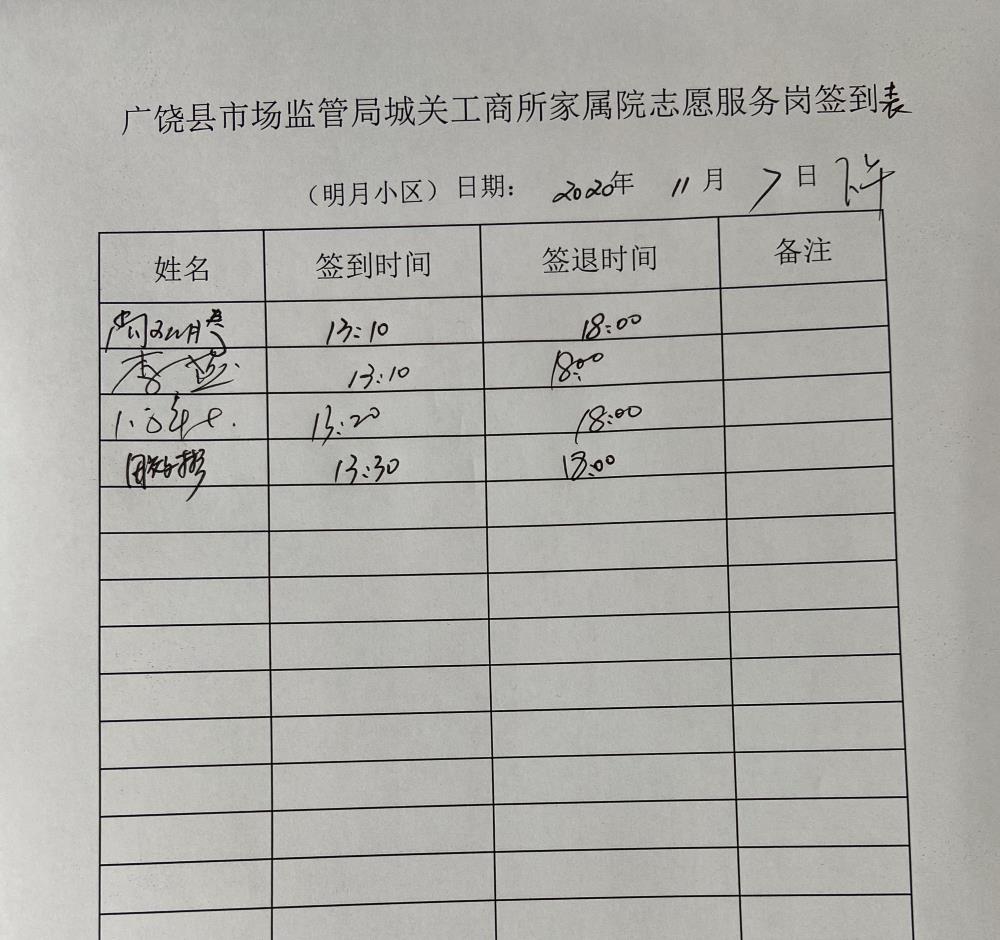 广饶县市场监管局城关工商所家属院志愿服务岗签到表
（明月小区）日期： 2020年 11月 7日 下午
姓名 签到时间 签退时间 备注
13:10 18:00
李 13:10 18:00
13:20 18:00
13:30 18:00